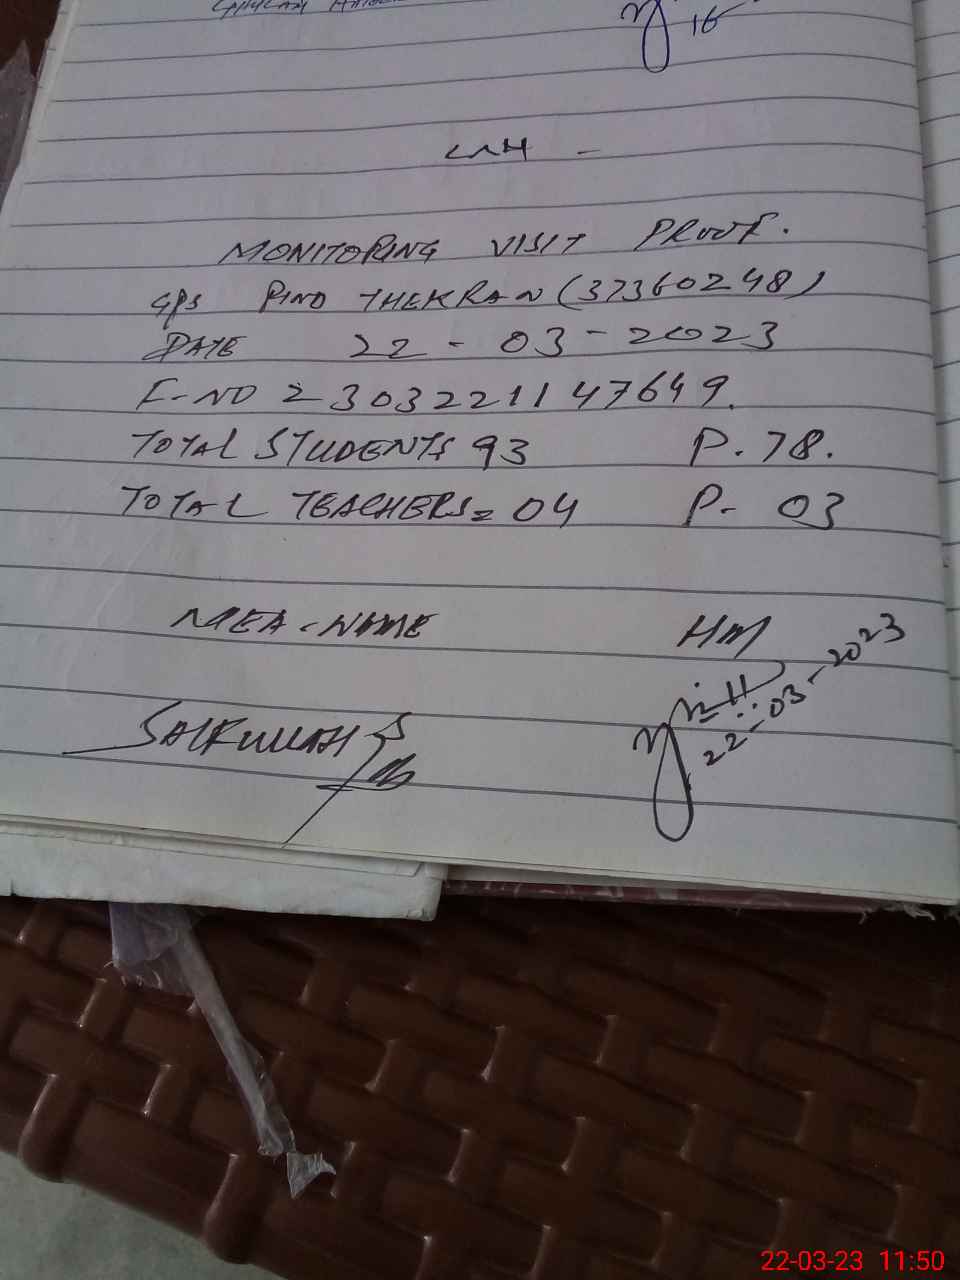 16
MONITORING VISIT PROOF.
GPS PIND THEKRAN (37360248)
DATE 22-03-2023
F-NO 2303221147649.
TOTAL STUDENTS 93 P. 78.
TOTAL TEACHERS= 04 P- 03
MEA-NAME HM
SAIFULLAH
22-03-2023
22-03-23 11:50